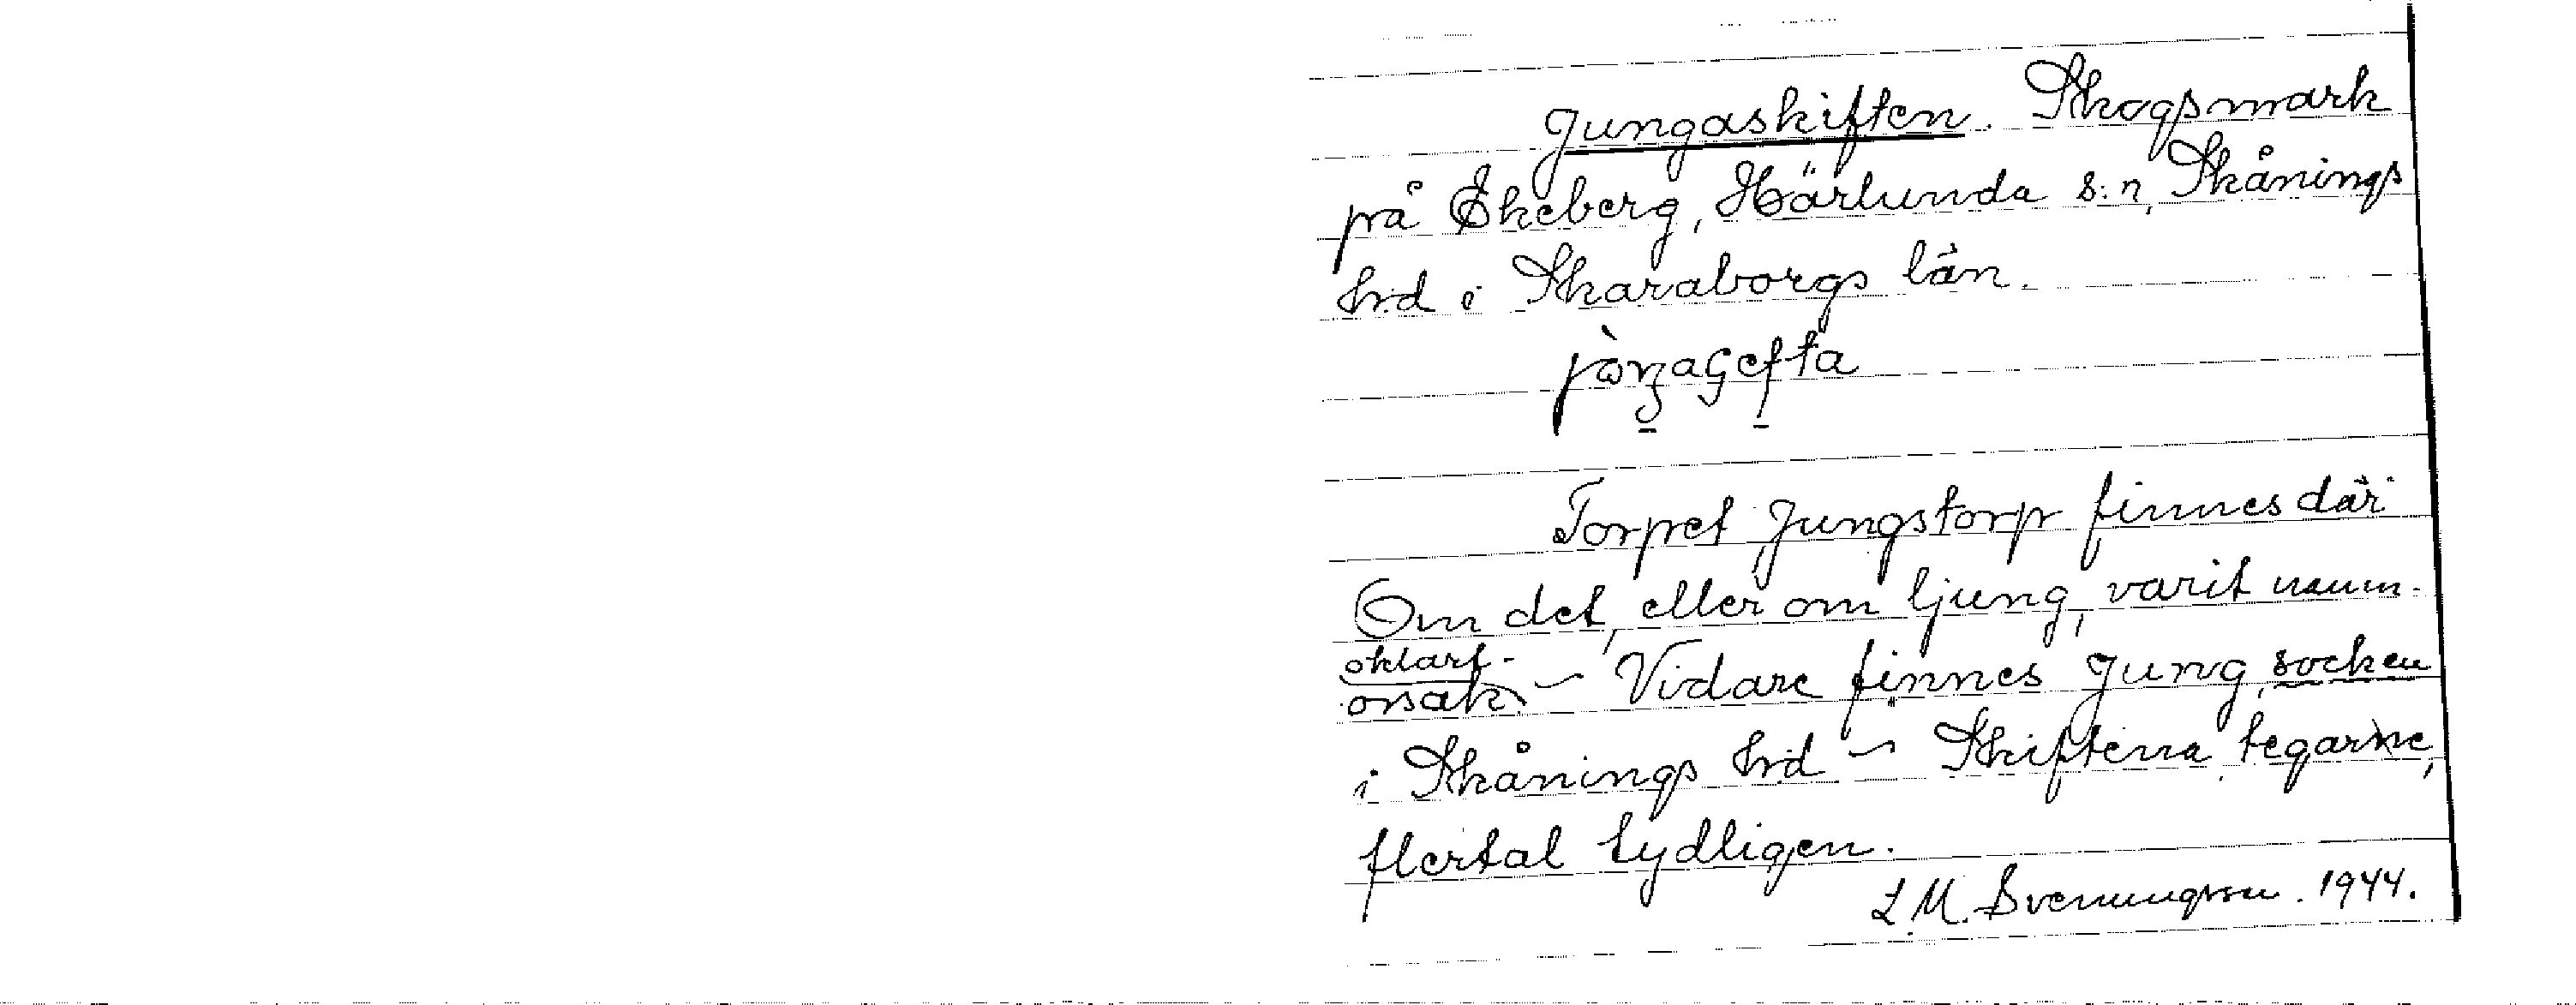 Jungaskiften. Skogsmark
på Ekeberg, Härlunda s:n, Skånings
hrd i Skaraborgs län.
Torpet Jungstorp finnes där
Om det, eller om ljung, varit namn-
oklart.
orsak. – Vidare finnes Jung, socken
i Skånings hrd – Skiftena, tegarne,
flertal tydligen.
L M. Svenungsson. 1944.